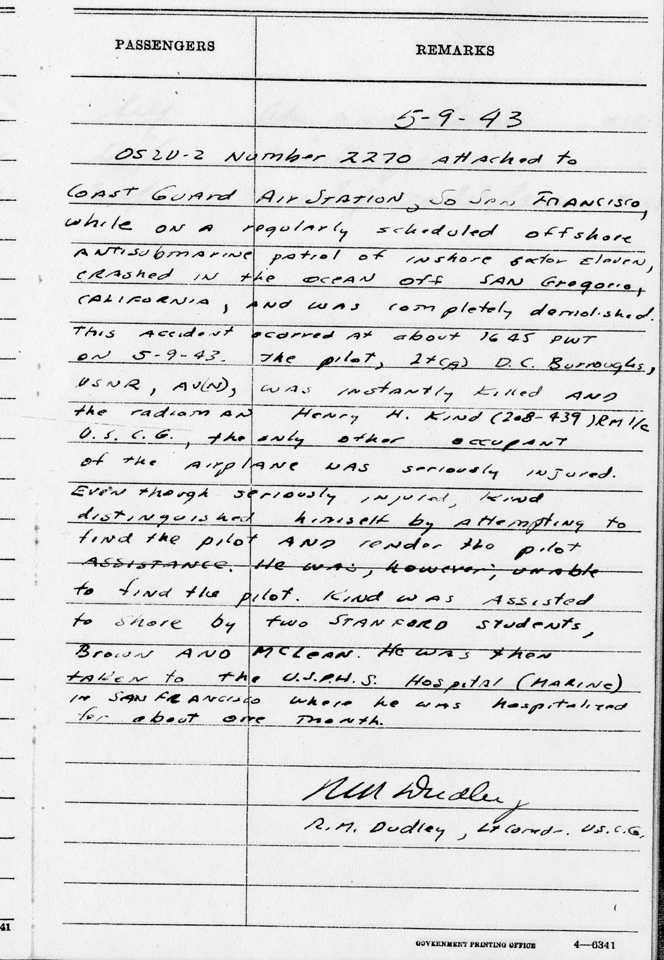 PASSENGERS REMARKS
5-9-43
OS2U-2 Number 2270 Attached to
Coast Guard Air Station, So San Francisco,
while on a regularly scheduled offshore
antisubmarine patrol of inshore sector Eleven,
crashed in the ocean off San Gregorio,
California, and was completely demolished.
This accident ocorred at about 1645 PWT
on 5-9-43. The pilot, Lt(jg) D.C. Burroughs,
USNR, AV(N), was instantly killed and
the radioman Henry H. Kind (208-439) RM 1/c
U.S.C.G., the only other occupant
of the airplane was seriously injured.
Even though seriously injured, Kind
distinguished himself by attempting to
find the pilot and render the pilot
assistance. He was, however, unable
to find the pilot. Kind was assisted
to shore by two Stanford students,
Brown and McLean. He was then
taken to the U.S.P.H.S. Hospital (Marine)
in San Francisco where he was hospitalized
for about one month.
RM Dudley
R.M. Dudley, Lt Comdr. U.S.C.G.
GOVERNMENT PRINTING OFFICE 4—6341
41